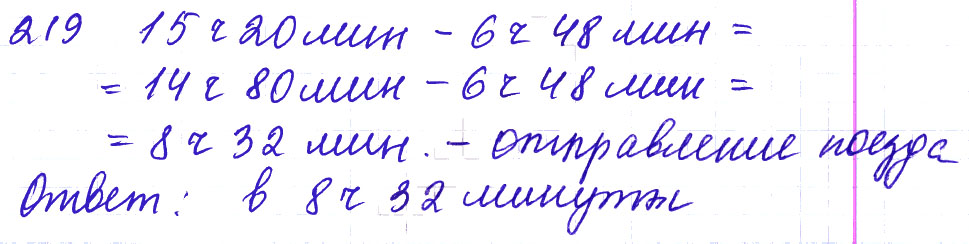 219 15 ч 20 мин - 6 ч 48 мин =
= 14 ч 80 мин - 6 ч 48 мин =
= 8 ч 32 мин. - отправление поезда
Ответ: в 8 ч 32 минуты